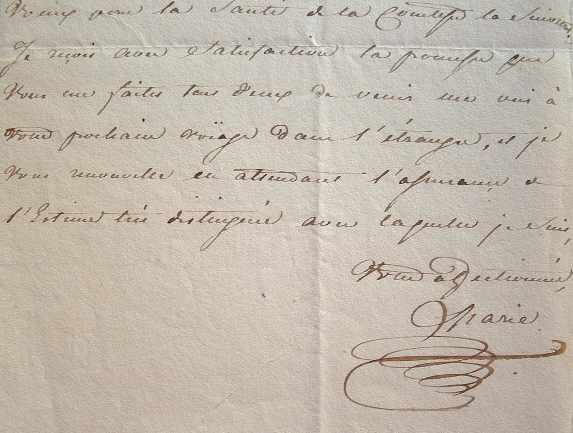 Voeux pour la Santé de la Comtesse la
Je reçois avec Satisfaction la promesse que
Vous me faites tous deux de venir me voir à
votre prochain voÿage dans l'étranger, et je
Vous renouvelle en attendant l'assurance de
l'Estime très distinguée avec laquelle je suis,
Votre affectionnée,
Marie